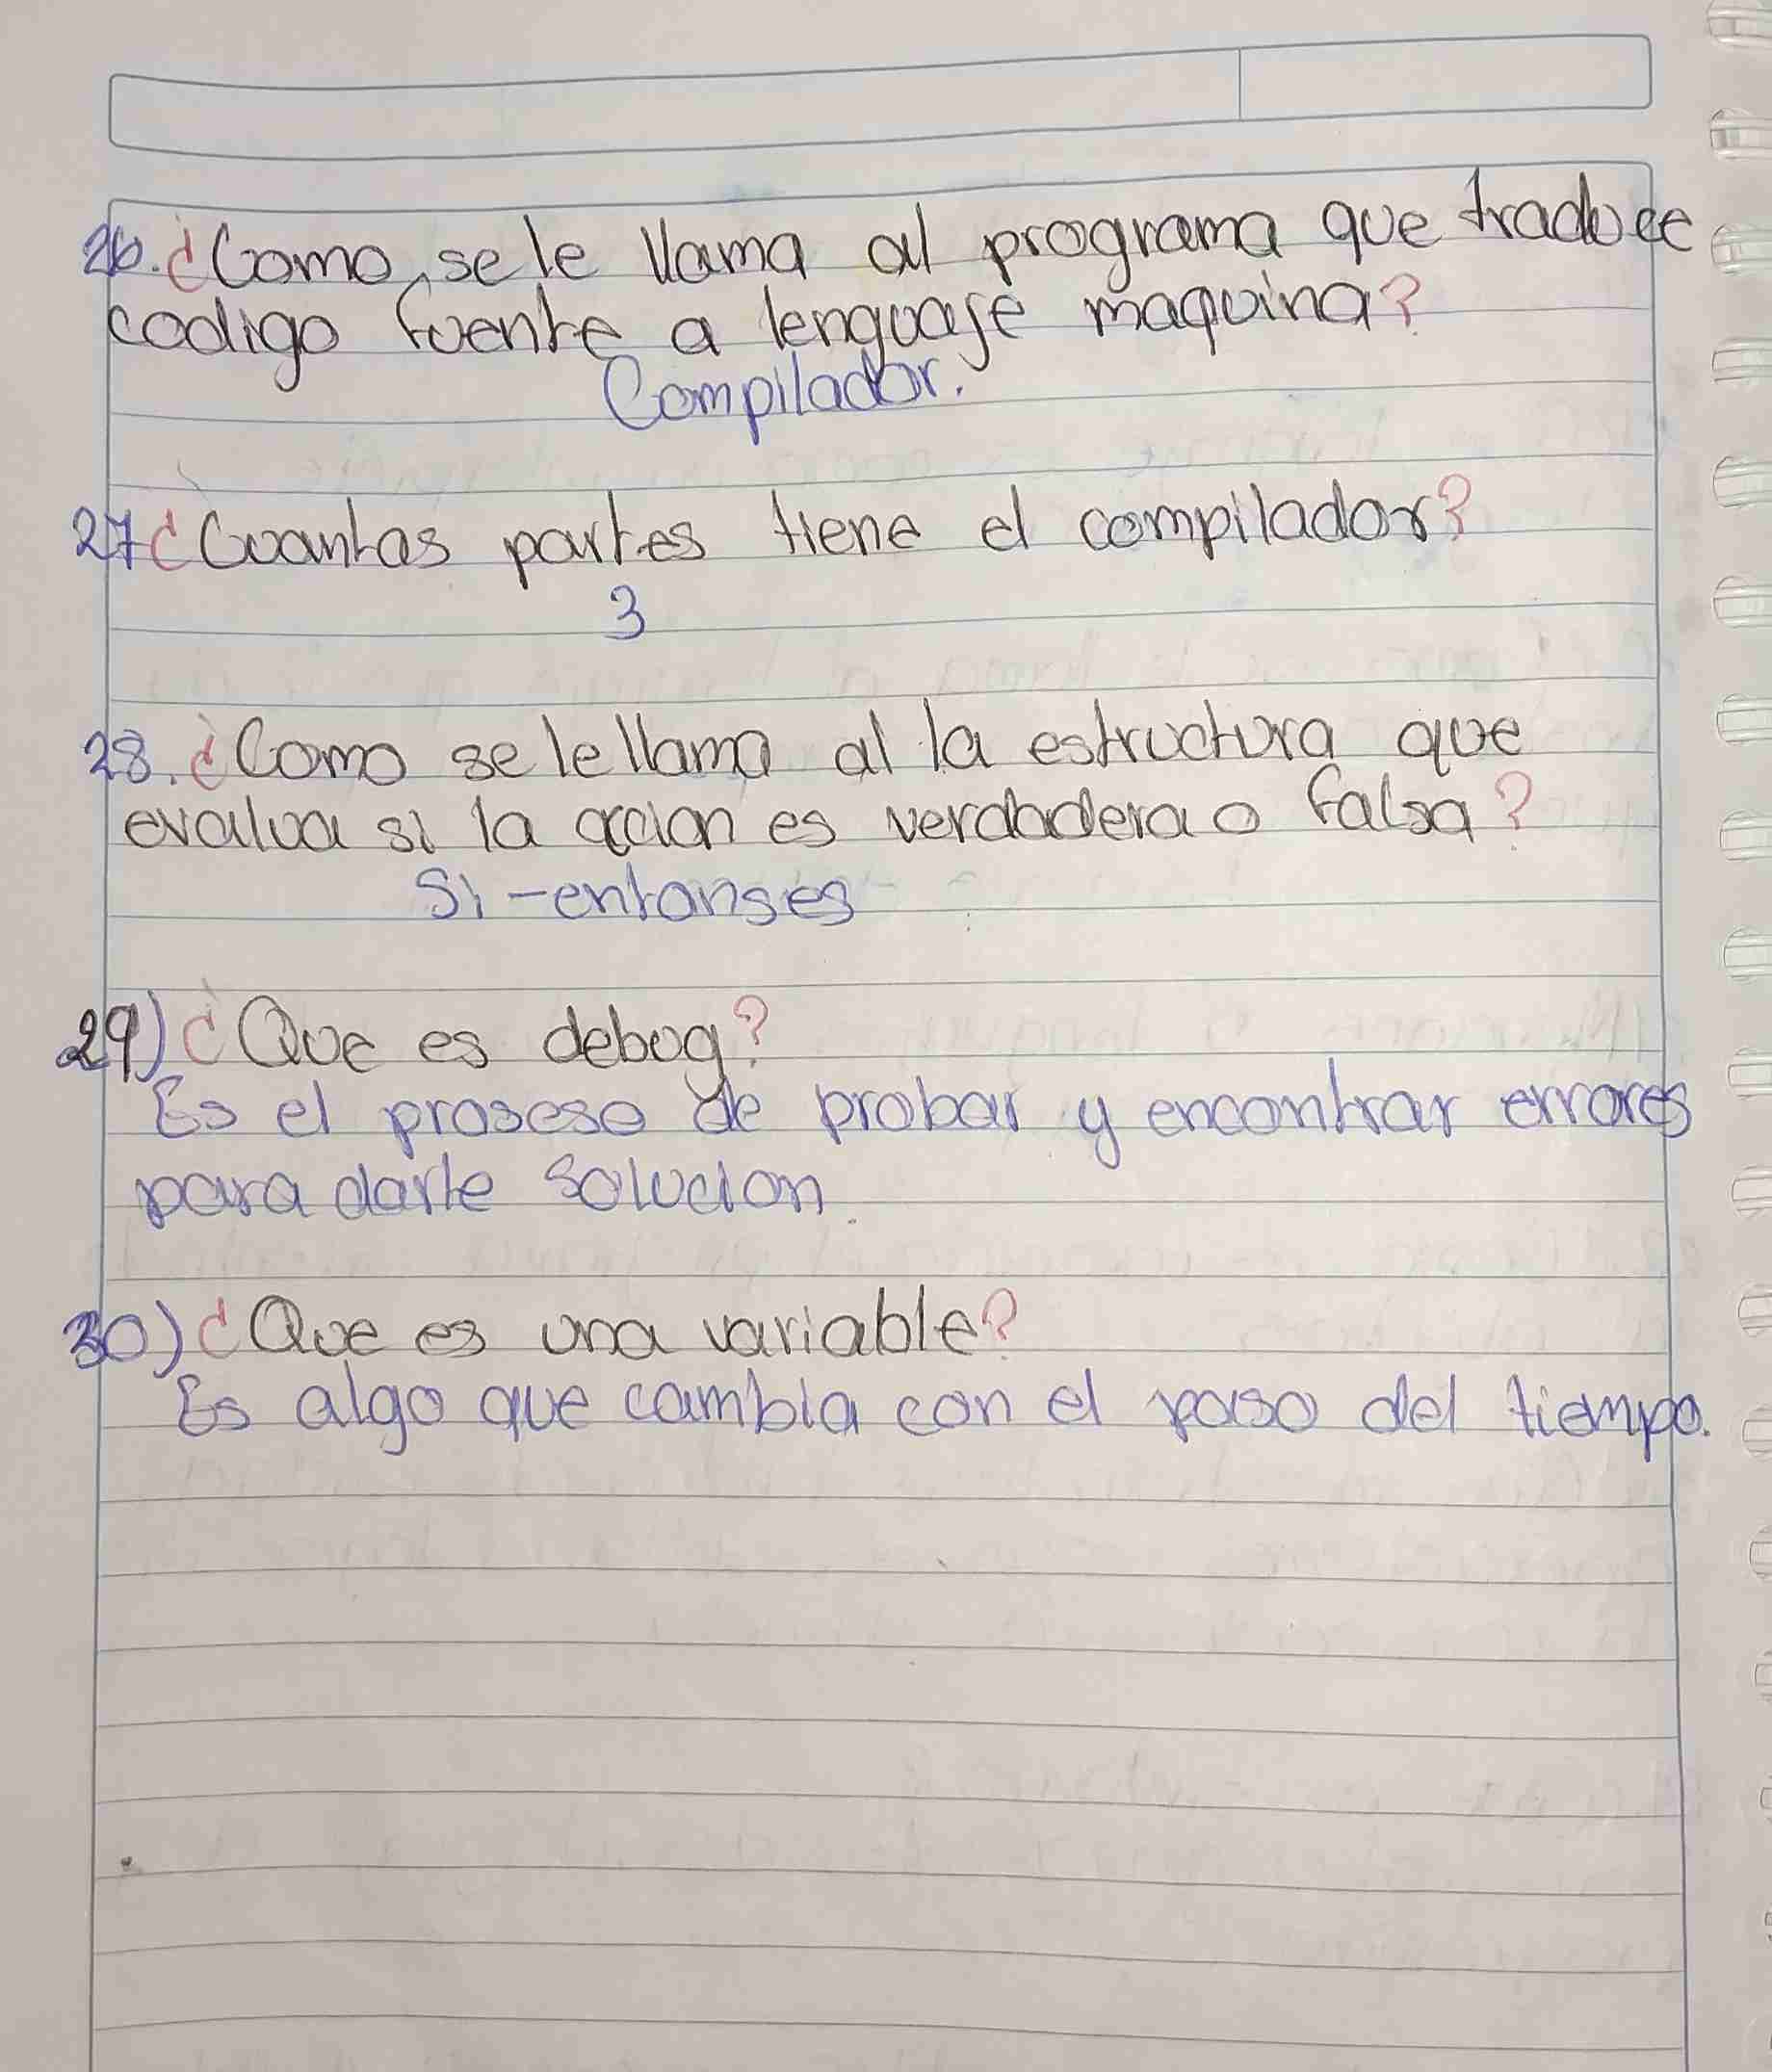 26. ¿Como se le llama al programa que traduce
codigo fuente a lenguaje maquina?
Compilador.
27 ¿Cuantas partes tiene el compilador?
3
28. ¿Como se le llama al la estructura que
evalua si la accion es verdadera o falsa?
Si -entonses
29) ¿Que es debug?
Es el proseso de probar y encontrar errores
para darle solucion.
30) ¿Que es una variable?
Es algo que cambia con el paso del tiempo.